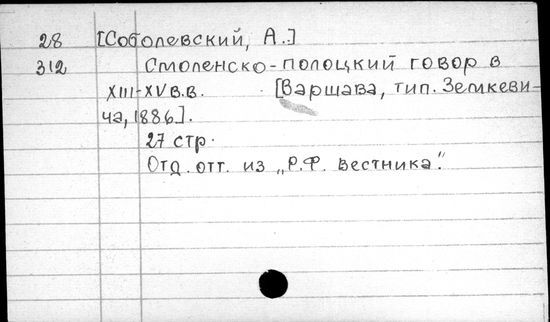 28 [Соболевский, А.]
312 Смоленско-полоцкий говор в
XIII-XV в.в. [Варшава, тип. Земкеви-
ча, 1886].
27 стр.
Отд. отт. из „Р.Ф. Вестника".